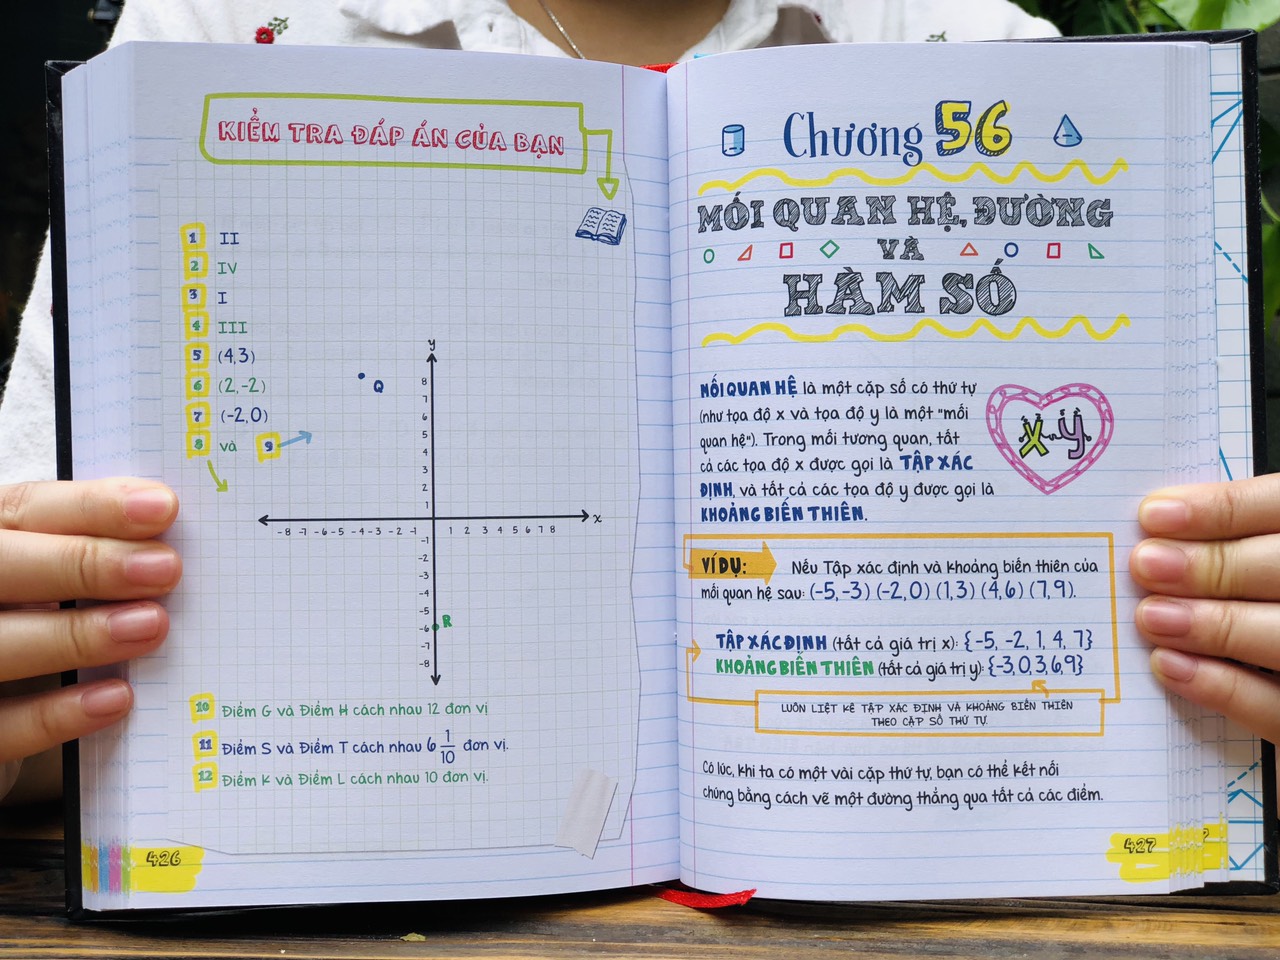 KIỂM TRA ĐÁP ÁN CỦA BẠN
1 II
2 IV
3 I
4 III
5 (4,3)
6 (2,-2)
7 (-2,0)
8 và 9
y
Q
8
7
6
5
4
3
2
1
-8 -7 -6 -5 -4 -3 -2 -1 1 2 3 4 5 6 7 8 x
-1
-2
-3
-4
-5
-6 R
-7
-8
10 Điểm G và Điểm H cách nhau 12 đơn vị
11 Điểm S và Điểm T cách nhau 6 1/10 đơn vị.
12 Điểm K và Điểm L cách nhau 10 đơn vị.
426
Chương 56
MỐI QUAN HỆ, ĐƯỜNG
VÀ
HÀM SỐ
MỐI QUAN HỆ là một cặp số có thứ tự
(như tọa độ x và tọa độ y là một "mối
quan hệ"). Trong mối tương quan, tất
cả các tọa độ x được gọi là TẬP XÁC
ĐỊNH, và tất cả các tọa độ y được gọi là
KHOẢNG BIẾN THIÊN.
x và y
VÍ DỤ: Nếu Tập xác định và khoảng biến thiên của
mối quan hệ sau: (-5,-3) (-2,0) (1,3) (4,6) (7,9).
TẬP XÁC ĐỊNH (tất cả giá trị x): {-5, -2, 1, 4, 7}
KHOẢNG BIẾN THIÊN (tất cả giá trị y): {-3,0,3,6,9}
LUÔN LIỆT KÊ TẬP XÁC ĐỊNH VÀ KHOẢNG BIẾN THIÊN
THEO CẶP SỐ THỨ TỰ.
Có lúc, khi ta có một vài cặp thứ tự, bạn có thể kết nối
chúng bằng cách vẽ một đường thẳng qua tất cả các điểm.
427